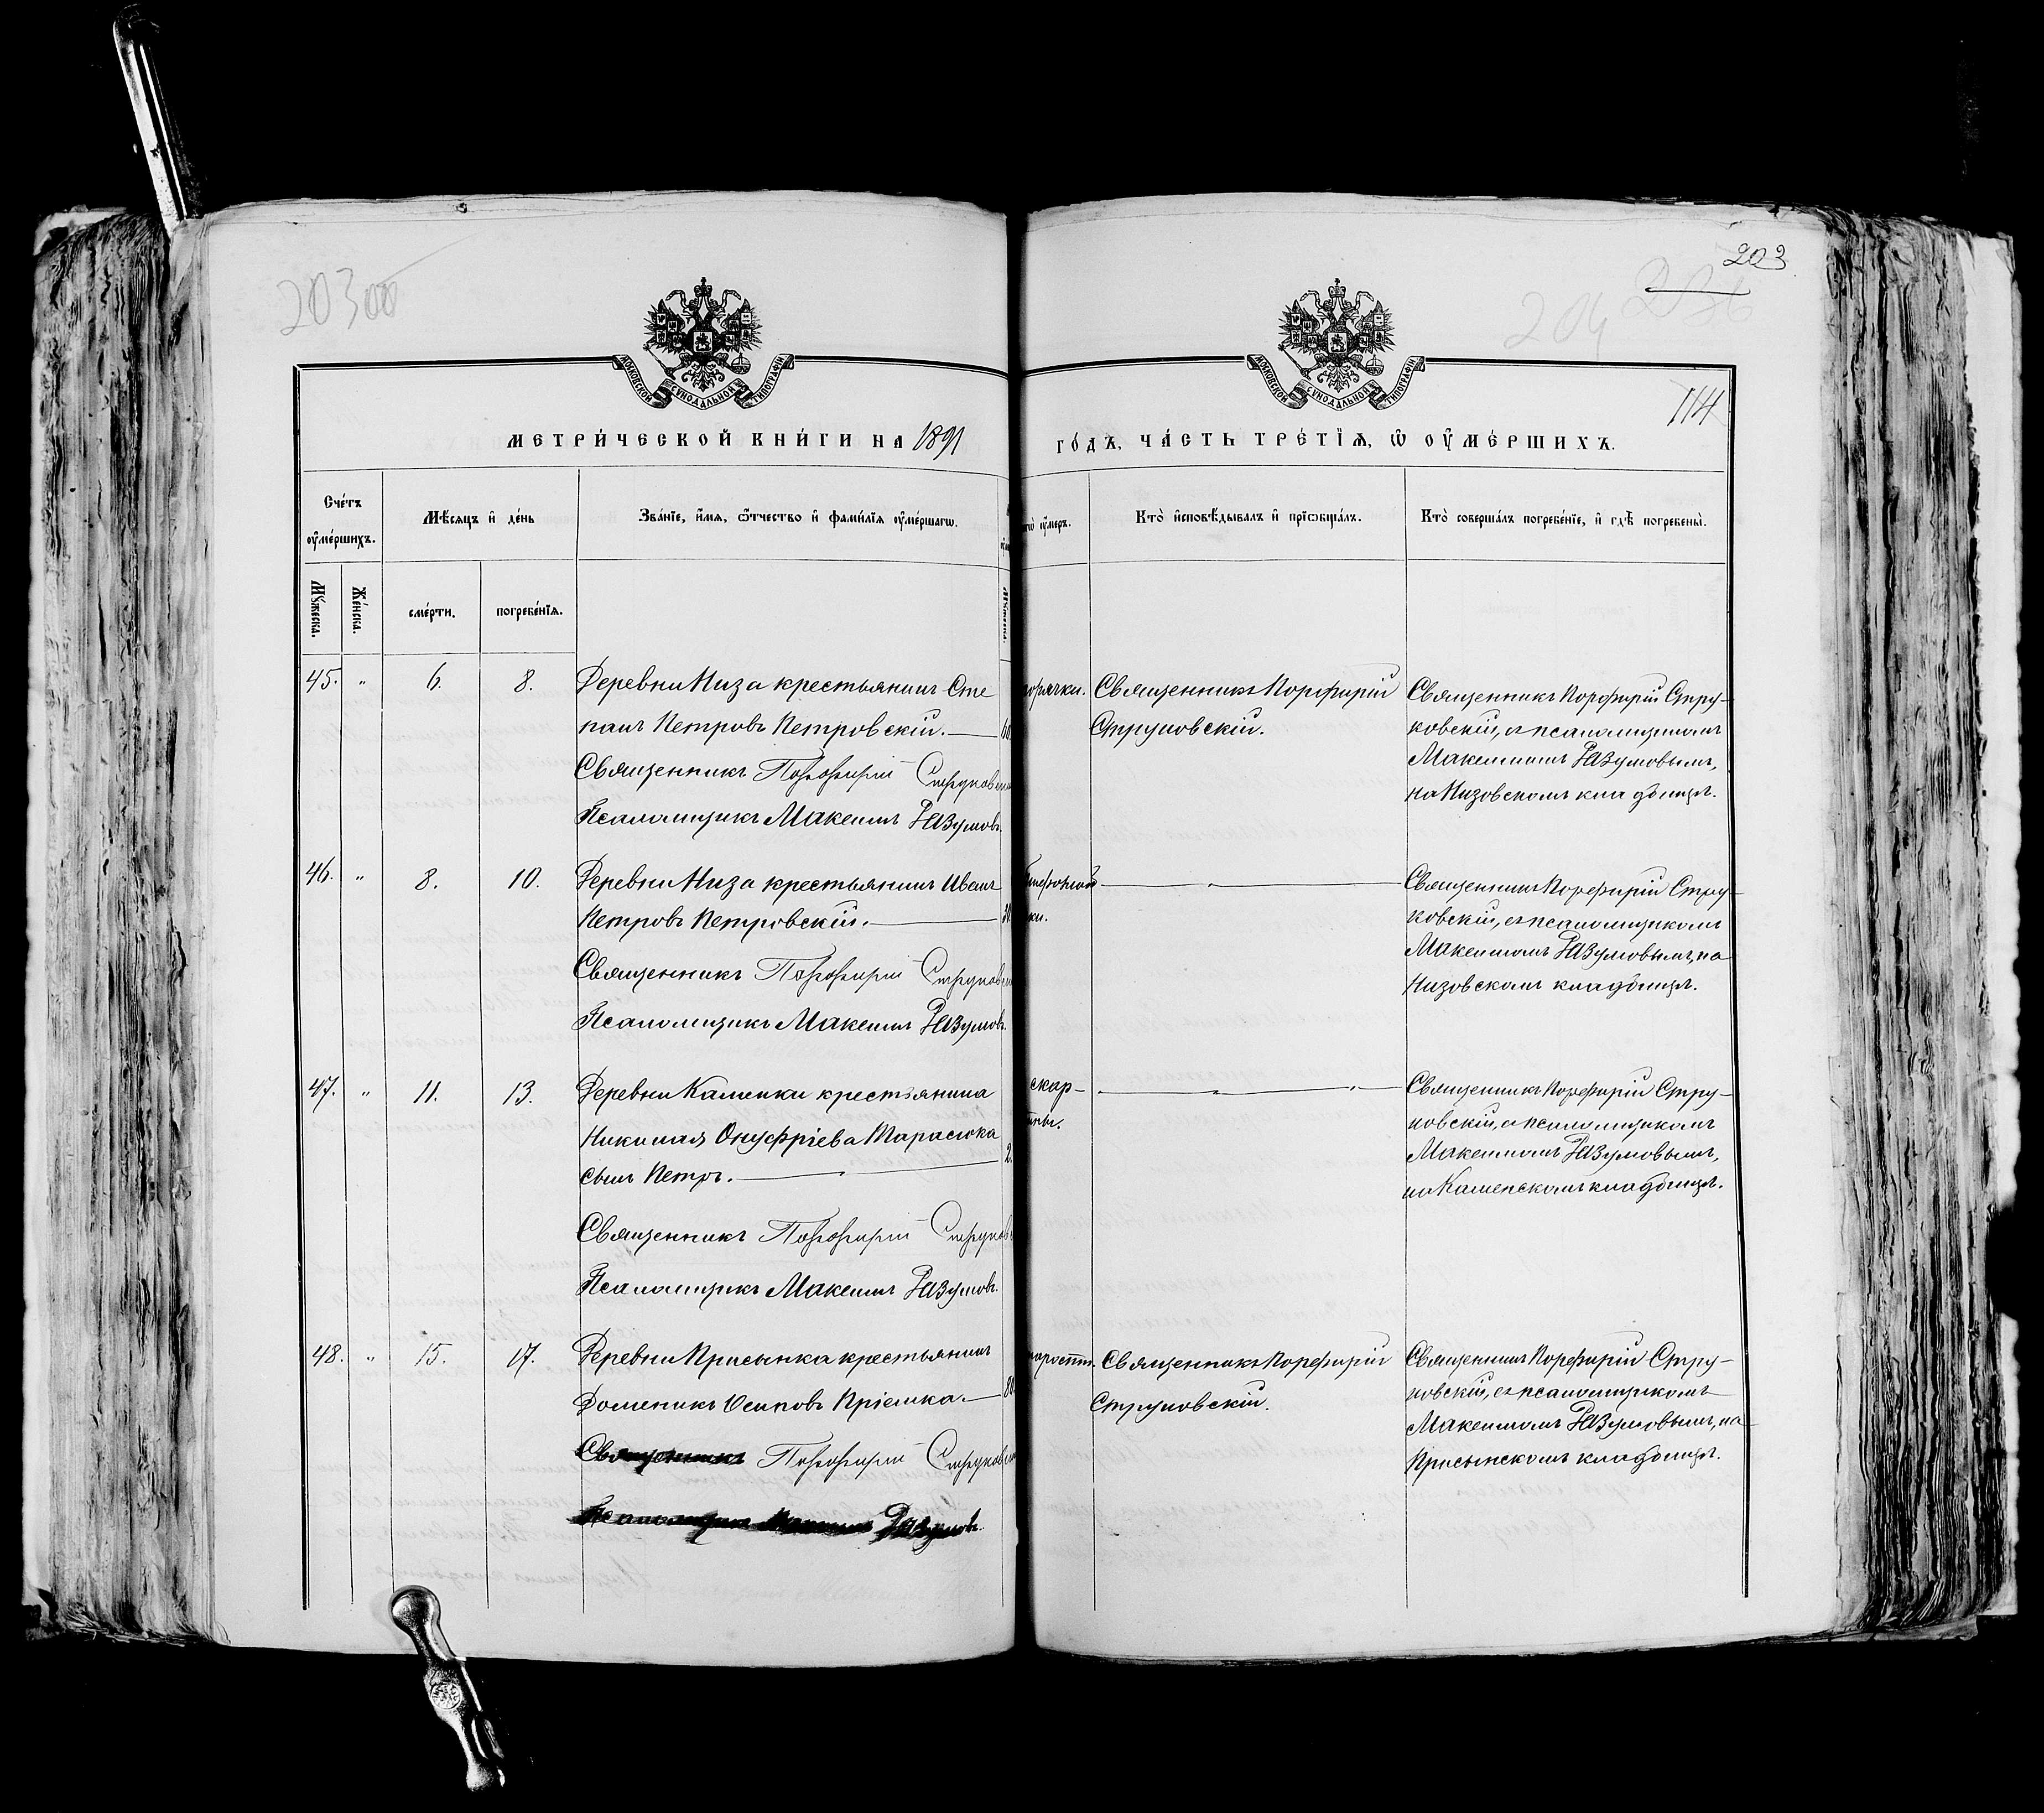 203
203об
204
114
МОСКОВСКОЙ СѴНОДАЛЬНОЙ ТИПОГРАФІИ
МОСКОВСКОЙ СѴНОДАЛЬНОЙ ТИПОГРАФІИ
МЕТРИ́ЧЕСКОЙ КНИ́ГИ НА 1891
ГО́ДЪ, ЧА́СТЬ ТРЕ́ТЇѦ, Ѡ҆ ОУ҆МЕ́РШИХЪ.
Сче́тъ оу҆ме́ршихъ.
Мѣ́сяцъ и҆ де́нь
Зва́нїе, и҆́мя, ѻ҆́тчество и҆ фами́лїя оу҆ме́ршагѡ.
оу҆́меръ.
Кто̀ и҆сповѣ́дывалъ и҆ прїѡбща́лъ.
Кто̀ соверша́лъ погребе́нїе, и҆ гдѣ̀ погребены̀.
Мꙋ́жеска.
Же́нска.
сме́рти.
погребе́нїя.
45. " 6. 8.
Деревни Низа крестьянинъ Сте
панъ Петровъ Петровскій.
Священникъ Порфирій Струковскі
Псаломщикъ Максимъ Разумовъ.
горячки.
Священникъ Порфирій
Струковскій.
Священникъ Порфирій Стру-
ковскій, съ псаломщикомъ
Максимомъ Разумовымъ,
на Низовскомъ кладбищѣ.
46. " 8. 10.
Деревни Низа крестьянинъ Иванъ
Петровъ Петровскій.
Священникъ Порфирій Струковскі
Псаломщикъ Максимъ Разумовъ.
ки.
Священникъ Порфирій Стру-
ковскій, съ псаломщикомъ
Максимомъ Разумовымъ, на
Низовскомъ кладбищѣ.
47. " 11. 13.
Деревни Каменки крестьянина
Николая Онуфріева Тарасюка
сынъ Петръ. 2.
Священникъ Порфирій Струковс
Псаломщикъ Максимъ Разумовъ.
скар-
тны.
Священникъ Порфирій Стру-
ковскій, съ псаломщикомъ
Максимомъ Разумовымъ,
на Каменскомъ кладбищѣ.
48. " 15. 17.
Деревни Присынка крестьянинъ
Доменикъ Осиповъ Пріемка. 80
Священникъ Порфирій Струковскі
Псаломщикъ Максимъ Разумовъ.
арости.
Священникъ Порфирій
Струковскій.
Священникъ Порфирій Стру-
ковскій, съ псаломщикомъ
Максимомъ Разумовымъ, на
Присынскомъ кладбищѣ.